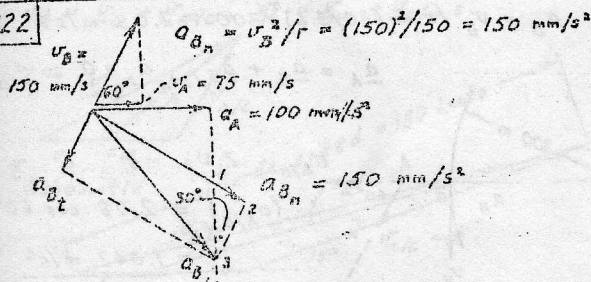 22
a_Bn = v_B²/r = (150)²/150 = 150 mm/s²
v_B =
150 mm/s
60°
v_A = 75 mm/s
a_A = 100 mm/s²
a_Bt
30°
1
2
a_Bn = 150 mm/s²
a_B
3